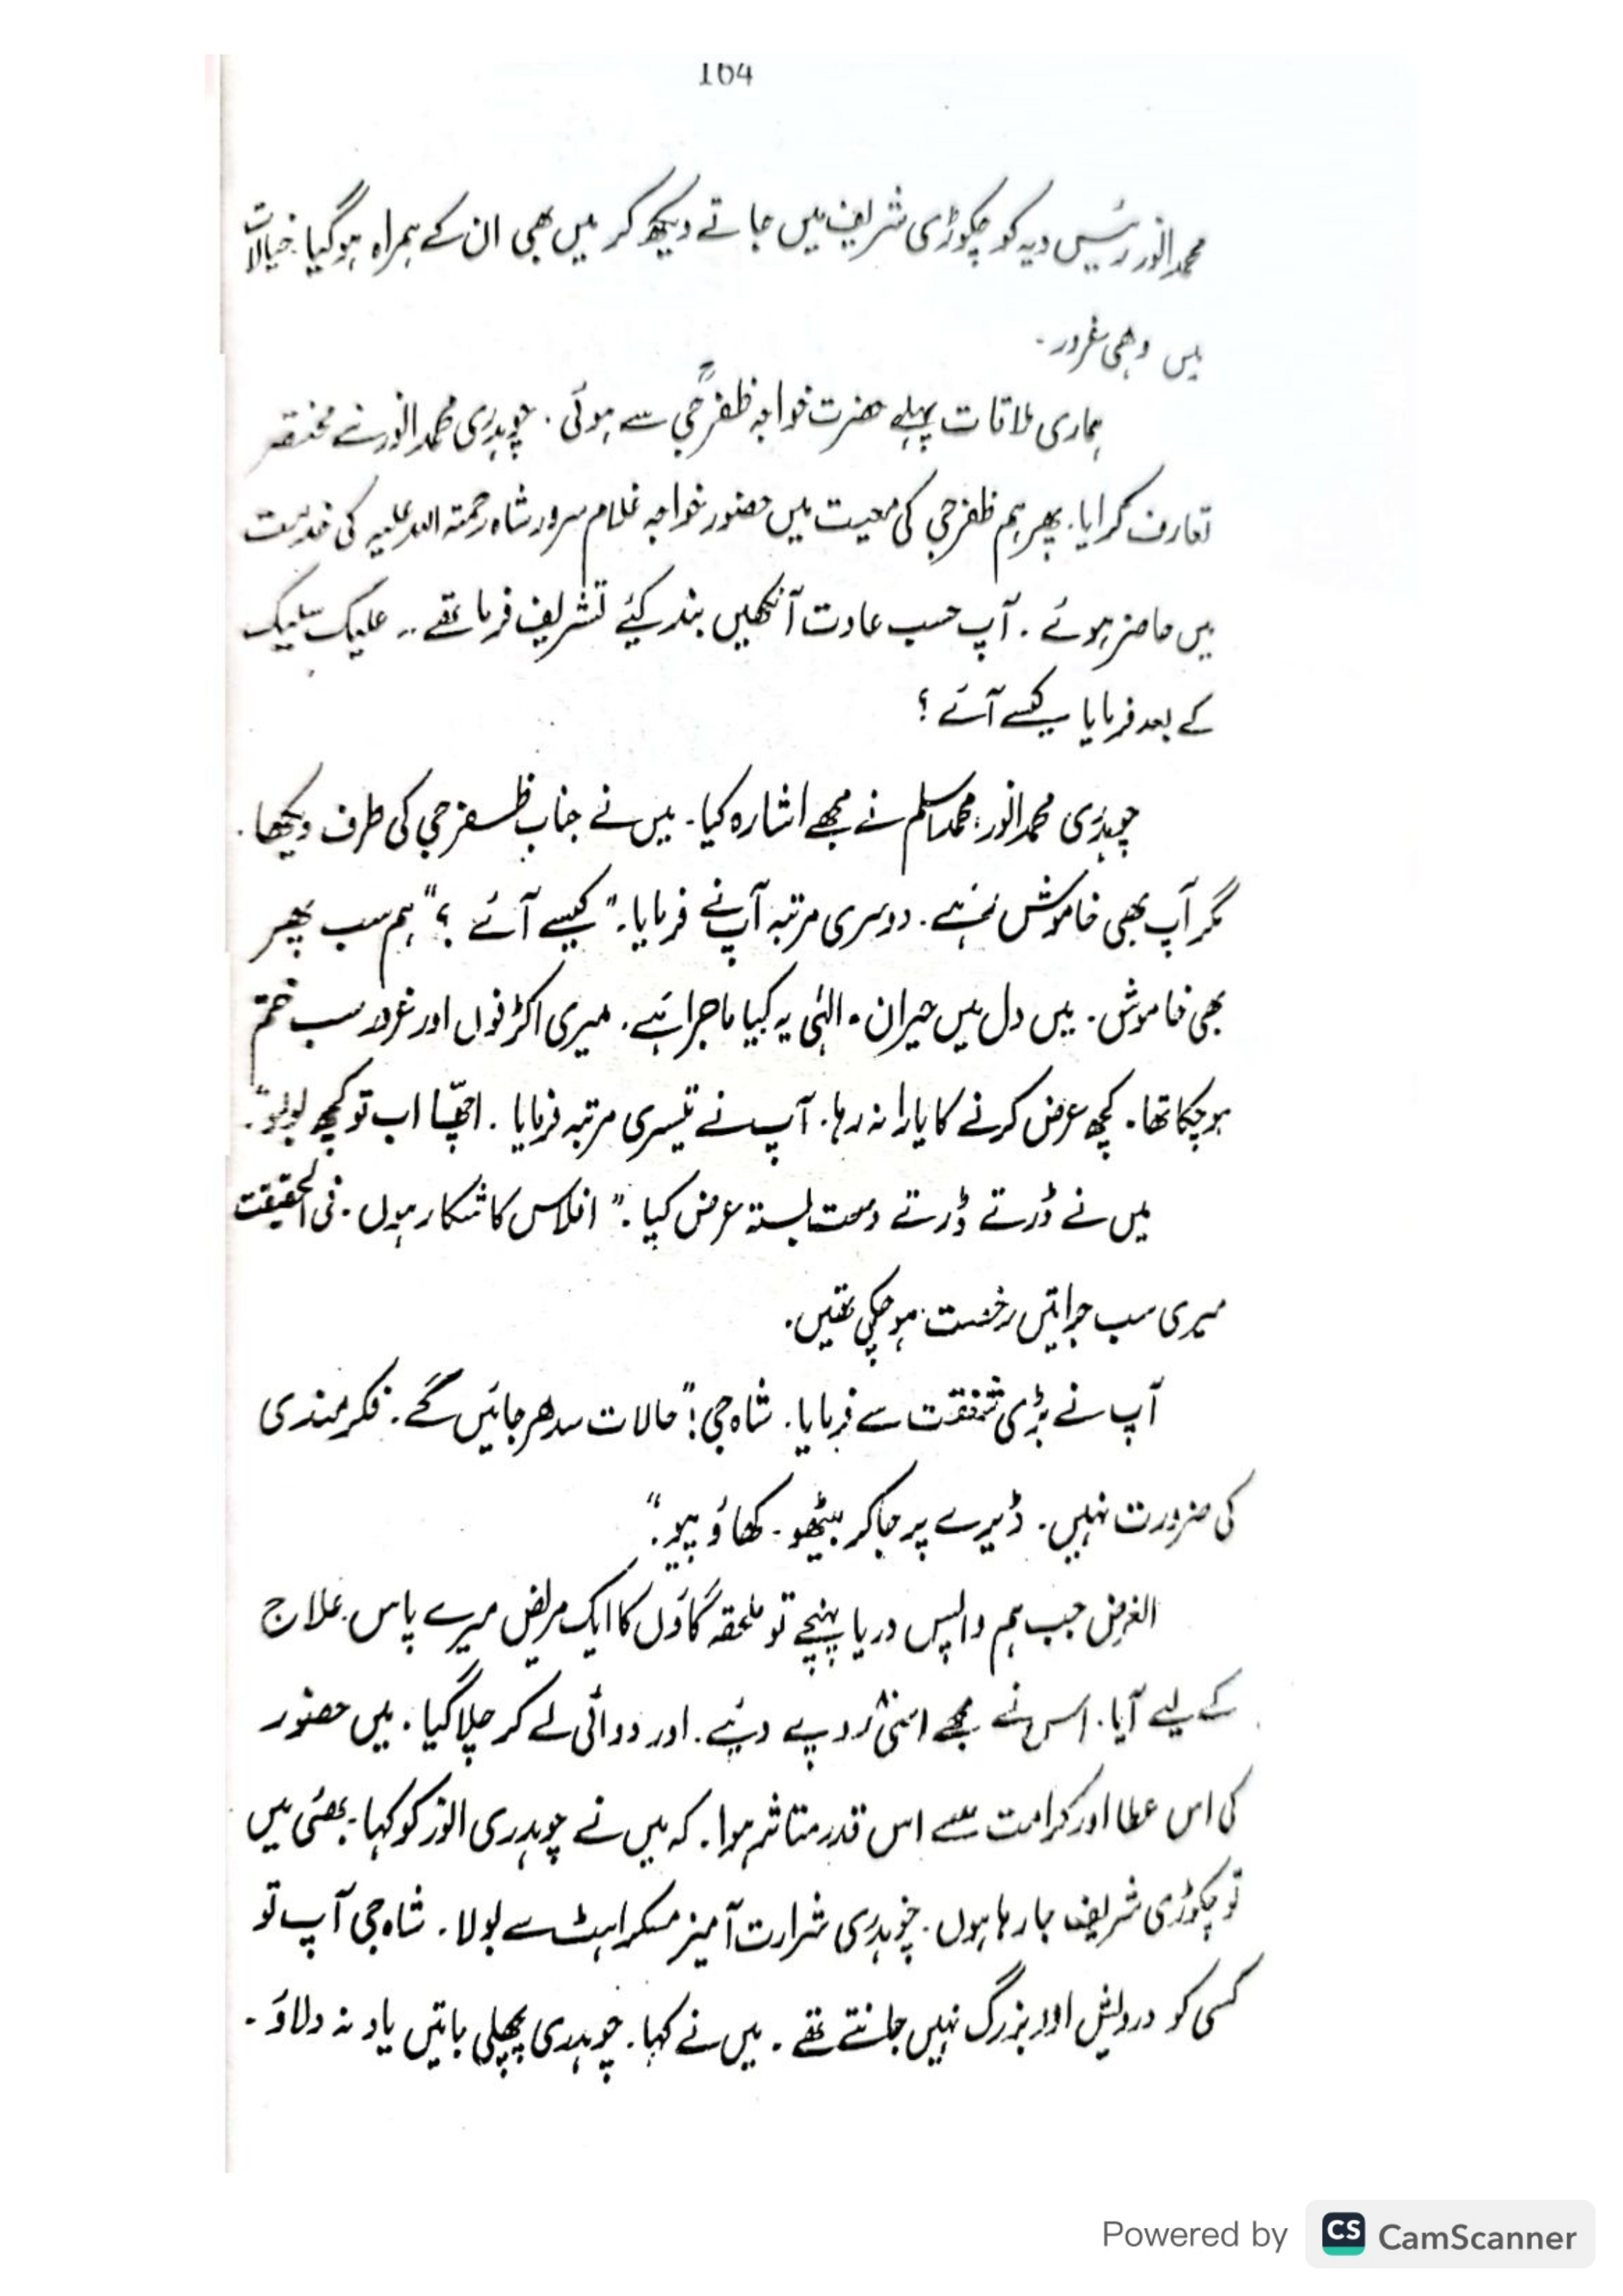 164
محمد انور رئیس دیہ کو چکوڑی شریف میں جاتے دیکھ کر میں بھی ان کے ہمراہ ہوگیا۔ خیالات
میں وہی غرور۔
ہماری ملاقات پہلے حضرت خواجہ ظفر جیؒ سے ہوئی۔ چوہدری محمد انور نے مختصر
تعارف کرایا۔ پھر ہم ظفر جی کی معیت میں حضور خواجہ غلام سرور شاہ رحمتہ اللہ علیہ کی خدمت
میں حاضر ہوئے۔ آپ حسب عادت آنکھیں بند کیئے تشریف فرما تھے۔۔ علیک سلیک
کے بعد فرمایا کیسے آئے ؟
چوہدری محمد انور، محمد اسلم نے مجھے اشارہ کیا۔ میں نے جناب ظفر جی کی طرف دیکھا۔
مگر آپ بھی خاموش رہے۔ دوسری مرتبہ آپ نے فرمایا۔ "کیسے آئے ؟" ہم سب پھر
بھی خاموش۔ میں دل میں حیران۔ الہٰی یہ کیا ماجرا ہے۔ میری اکڑ فوں اور غرور سب ختم
ہوچکا تھا۔ کچھ عرض کرنے کا یارا نہ رہا۔ آپ نے تیسری مرتبہ فرمایا۔ اچھا اب تو کچھ بولو"۔
میں نے ڈرتے ڈرتے دست بستہ عرض کیا۔" افلاس کا شکار ہوں۔ فی الحقیقت
میری سب جرائتیں رخصت ہوچکی تھیں۔
آپ نے بڑی شفقت سے فرمایا۔ شاہ جی! "حالات سدھر جائیں گے۔ فکر مندی
کی ضرورت نہیں۔ ڈیرے پر جاکر بیٹھو۔ کھاؤ پیو۔"
الغرض جب ہم واپس دریا پہنچے تو ملحقہ گاؤں کا ایک مریض میرے پاس علاج
کے لیے آیا۔ اس نے مجھے اسّی روپے دیئے۔ اور دوائی لے کر چلا گیا۔ میں حضور
کی اس عطا اور کرامت سے اس قدر متاثر ہوا۔ کہ میں نے چوہدری انور کو کہا۔ بھئی میں
تو چکوڑی شریف جا رہا ہوں۔ چوہدری شرارت آمیز مسکراہٹ سے بولا۔ شاہ جی آپ تو
کسی کو درویش اور بزرگ نہیں جانتے تھے۔ میں نے کہا۔ چوہدری پچھلی باتیں یاد نہ دلاؤ۔
Powered by CS CamScanner